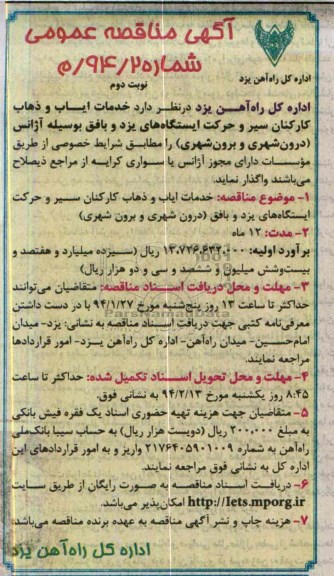 آگهی مناقصه عمومی
شماره ۹۴/۲/م
اداره کل راه‌آهن یزد
نوبت دوم
اداره کل راه‌آهـــن یزد درنظـر دارد خدمات ایـاب و ذهاب
کارکنان سیر و حرکت ایستگاه‌های یزد و بافق بوسیله آژانس
(درون‌شهری و برون‌شهری) را مطابـق شرایط خصوصی از طریق
مؤسسات دارای مجوز آژانس یا سـواری کرایـه از مراجع ذیصلاح
می‌باشند واگذار نماید.
۱- موضوع مناقصه: خدمات ایاب و ذهاب کارکنـان سیــر و حرکت
ایستگاه‌های یزد و بافق (درون شهری و برون شهری)
۲- مدت: ۱۲ ماه
برآورد اولیه: ۱۳،۷۲۶،۶۳۲،۰۰۰ ریال (سـیزده میلیارد و هفتصد و
بیست‌وشش میلیون و ششصد و سی و دو هزار ریال)
۳- مهلت و محل دریافت اسـناد مناقصه: متقاضیان می‌توانند
حداکثر تا ساعت ۱۳ روز پنج‌شنبه مورخ ۹۴/۱/۲۷ با در دست داشتن
معرفی‌نامه کتبی جهت دریافت اسناد مناقصه به نشانی: یزد- میدان
امام‌حسین- میدان راه‌آهن- اداره کل راه‌آهن یـزد- امور قراردادها
مراجعه نمایند.
۴- مهلت و محل تحویل اسـناد تکمیل شده: حداکثر تا ساعت
۸:۴۵ روز یکشنبه مورخ ۹۴/۲/۱۳ به نشانی فوق.
۵- متقاضیان جهت هزینه تهیه حضوری اسناد یک فقره فیش بانکی
به مبلغ ۲۰۰،۰۰۰ ریال (دویست هزار ریال) به حساب سیبا بانک‌ملی
راه‌آهن به شماره ۲۱۷۶۴۰۵۹۰۱۰۰۹ واریز و به امور قراردادهای این
اداره کل به نشانی فوق مراجعه نمایند.
۶- دریافـت اسـناد مناقصـه به صورت رایگان از طریق سـایت
http://Iets.mporg.ir امکان‌پذیر می‌باشد.
۷- هزینه چاپ و نشر آگهی مناقصه به عهده برنده مناقصه می‌باشد.
اداره کل راه‌آهن یزد